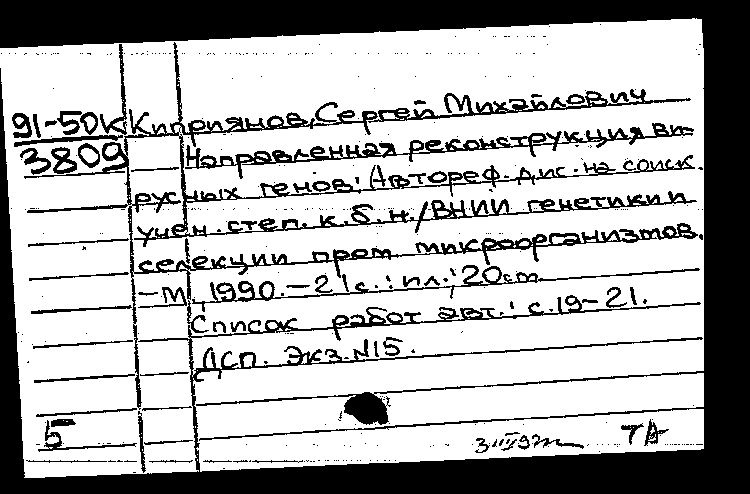 91-50К Киприянов, Сергей Михайлович
3809 Направленная реконструкция ви-
русных генов: Автореф. дис. на соиск.
учен. степ. к.б.н./ВНИИ генетики и
селекции пром. микроорганизмов.
-М., 1990.-21с.:ил.;20см
Список работ авт.: с.19-21.
ДСП. Экз. N15.
5